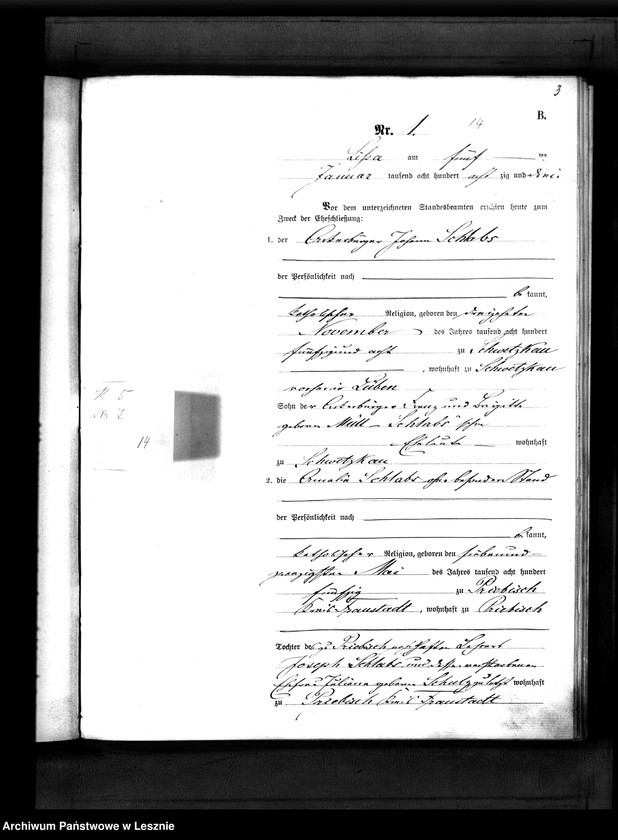 3
B.
Nr. 1. 14
Lissa am fünf ten
Januar tausend acht hundert acht zig und drei.
Vor dem unterzeichneten Standesbeamten erschienen heute zum
Zweck der Eheschließung:
1. der Ackerbürger Johann Schlabs
der Persönlichkeit nach
be kannt,
katholischer Religion, geboren den dreizehnten
November des Jahres tausend acht hundert
fünfzig und acht zu Schwetzkau
, wohnhaft zu Schwetzkau
vorher in Lüben
Sohn der Ackerbürger Franz und Brigitte
geborene Müll - Schlabs'schen
Eheleute wohnhaft
zu Schwetzkau
2. die Amalia Schlabs ohne besonderen Stand
der Persönlichkeit nach
be kannt,
katholischer Religion, geboren den sieben und
zwanzigsten Mai des Jahres tausend acht hundert
fünfzig zu Priebisch
Kreis Fraustadt, wohnhaft zu Priebisch
Tochter des zu Priebisch wohnhaften Lehrers
Joseph Schlabs und dessen verstorbenen
Ehefrau Juliana geborene Schulz zuletzt wohnhaft
zu Priebisch Kreis Fraustadt
14
Archiwum Państwowe w Lesznie